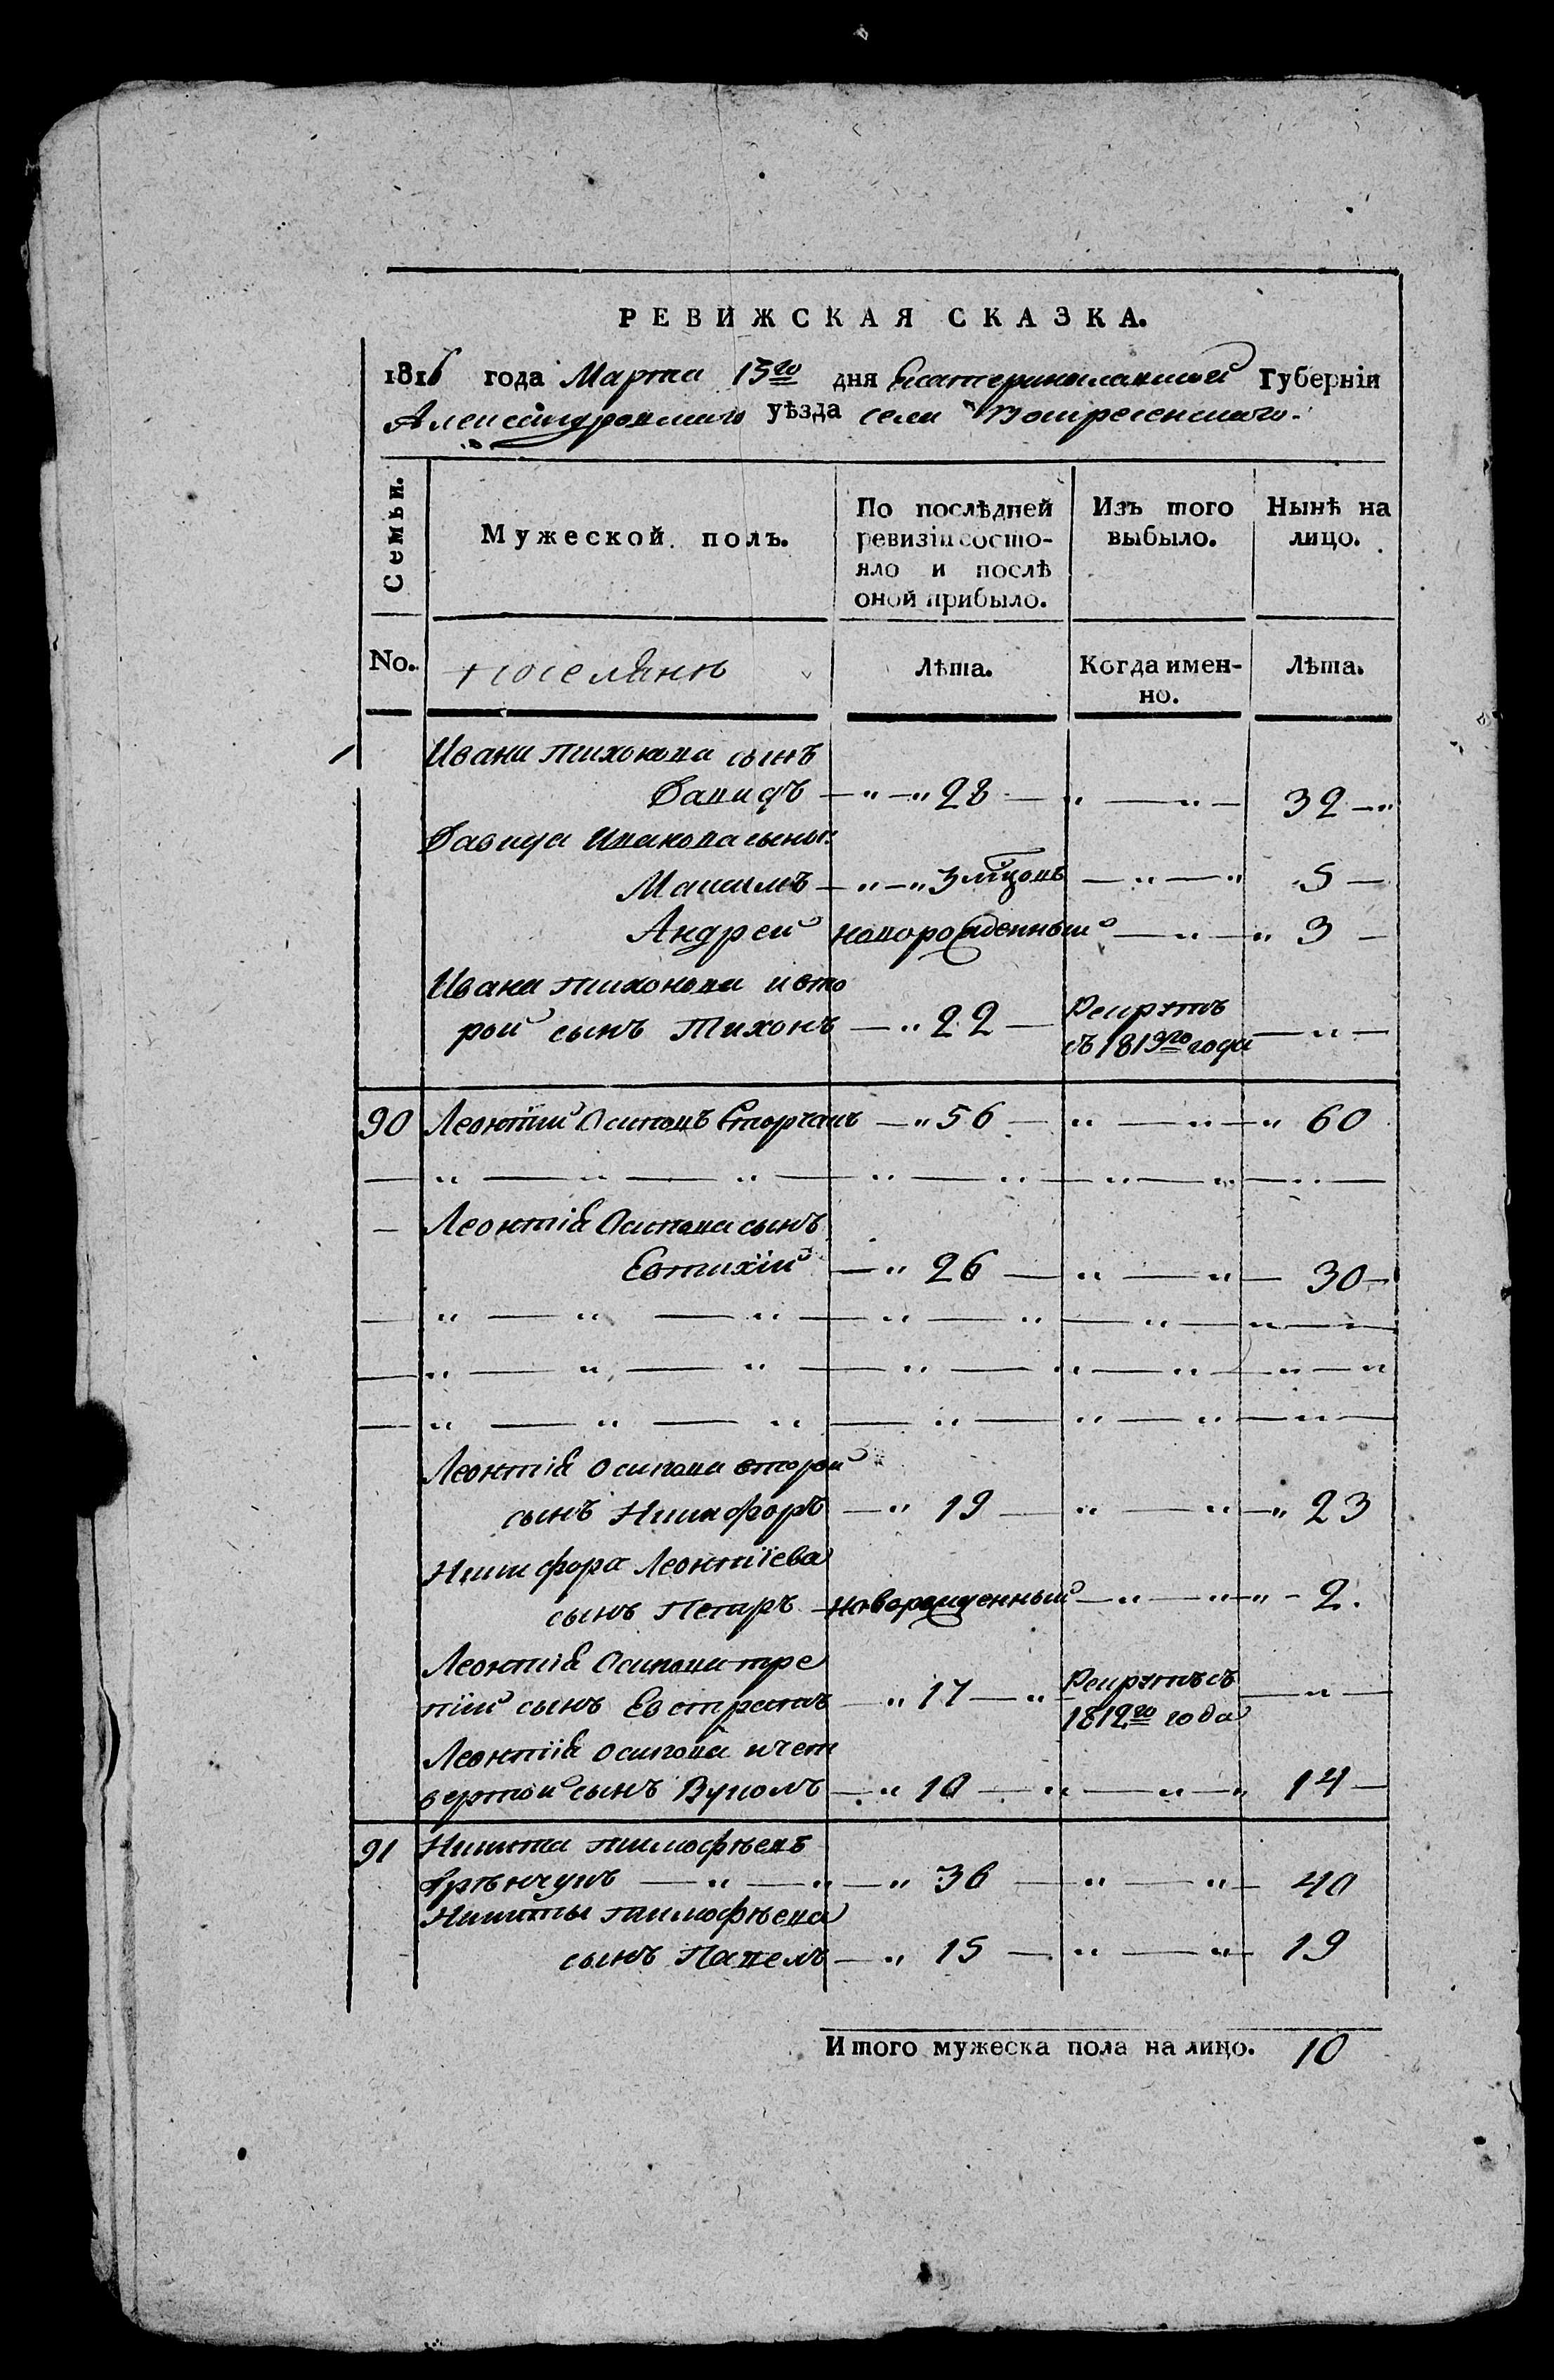 РЕВИЖСКАЯ СКАЗКА.
1816 года Марта 15го дня Екатеринославской Губерніи
Александровскаго уѣзда села Воскресенскаго.
Семьи.
Мужеской полъ.
По послѣдней ревизіи состо-
яло и послѣ
оной прибыло.
Изъ того
выбыло.
Нынѣ на
лицо.
No.
поселянѣ
Лѣта.
Когда имен-
но.
Лѣта.
Ивана Тихонова сынъ
Давидъ — " — " 28 — " — " — 32 — "
Давида Иванова сынъ:
Максимъ — " — " 3 мѣцовъ — " — " 5 —
Андрей новорожденный — " — " 3 —
Ивана Тихонова ивто
рой сынъ Тихонъ — " 22 — Рекрутъ
съ 1813го года — " —
90 Леонтий Осиповъ — " 56 — " — " — " 60
— " — " — " — " — " — " — " — " —
— Леонтія Осипова сынъ
Евтихій — " 26 — " — " — 30 —
— " — " — " — " — " — " — " — "
— " — " — " — " — " — " — " — "
— " — " — " — " — " — " — " —
Леонтія Осипова второй
сынъ Никифоръ — " 19 — " — " — " 23
Никифора Леонтіева
сынъ Петръ — новорожденный — " — " — " - 2.
Леонтія Осипова тре
тій сынъ Евстратъ — " 17 — " Рекрутъ съ
1812го года — " —
Леонтія Осипова ичет
вертой сынъ Вуколъ — " 10 — " — " — " 14 —
91 Никита Тимофѣевъ
— " — " — " 36 — " — " — 40
Никиты Тимофѣева
сынъ Павелъ — " 15 — " — " — 19
Итого мужеска пола на лицо. 10